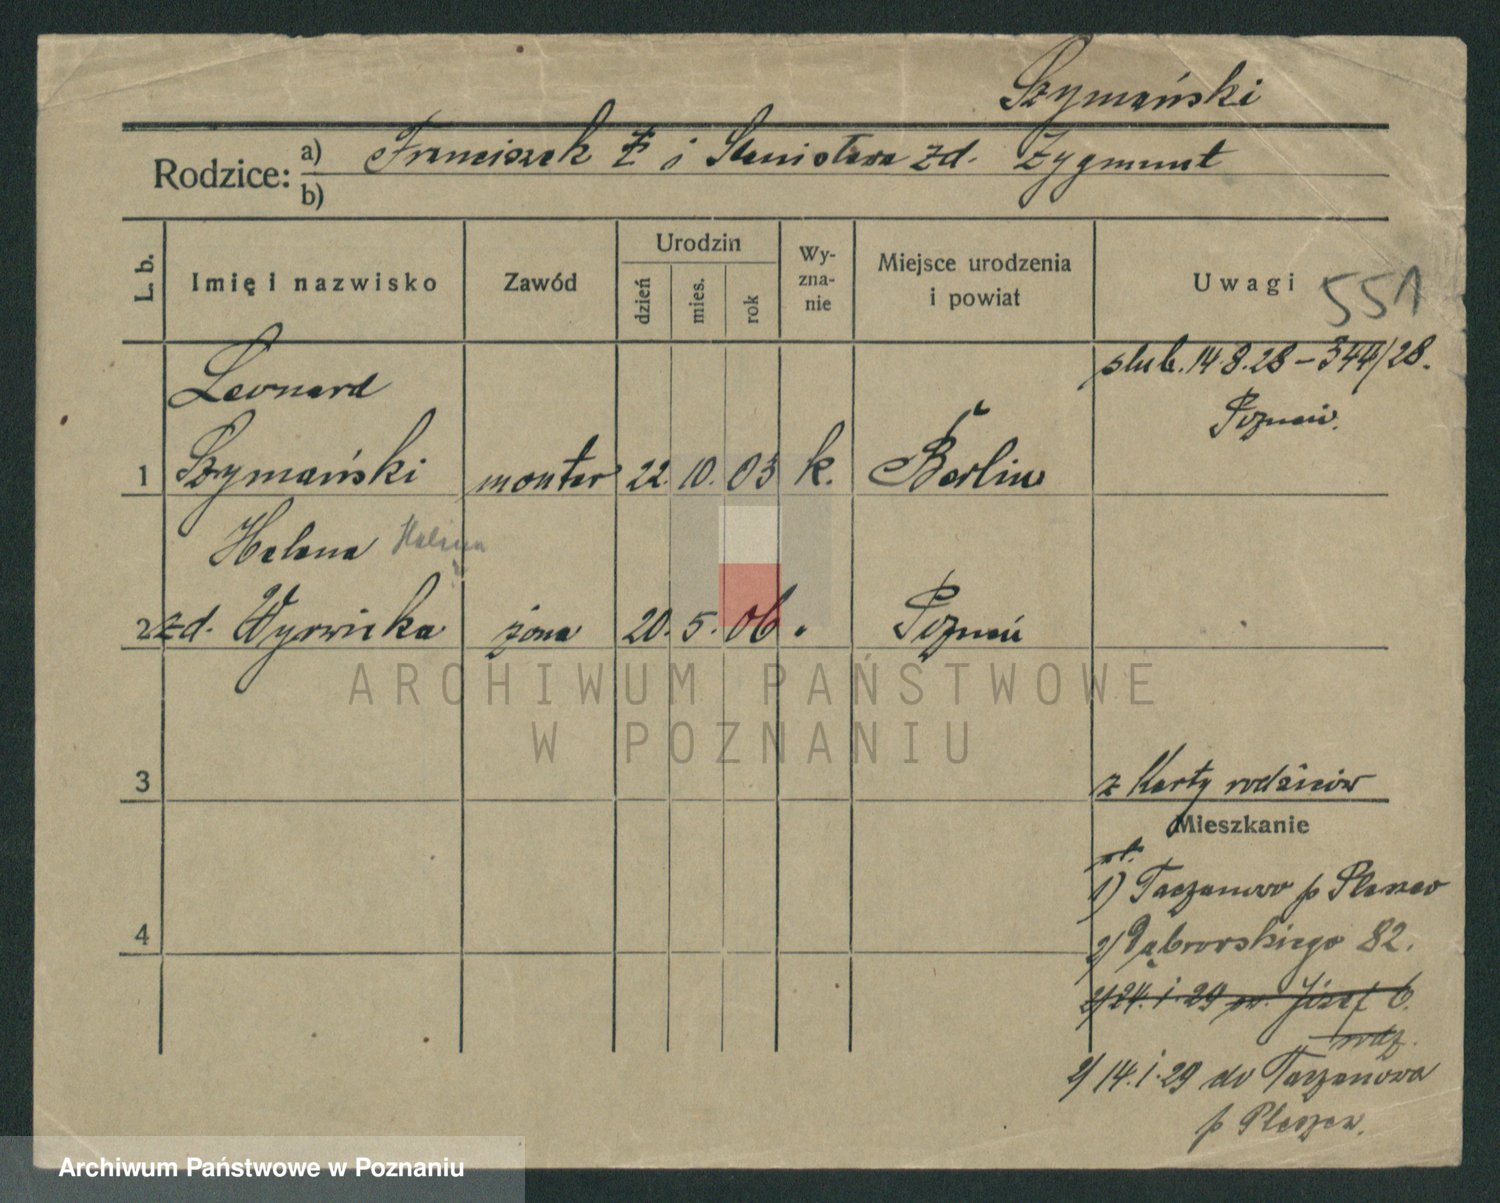 Szymański
Rodzice:
a) Franciszek i Stanisława zd. Zygmunt
b)
L. b.
Imię i nazwisko
Zawód
Urodzin
dzień
mies.
rok
Wy-
zna-
nie
Miejsce urodzenia
i powiat
Uwagi
551
Leonard
ślub. 14.8.28 – 344/28.
Poznań.
1 Szymański monter 22. 10. 03 k. Berlin
Helena Halina
2 zd. Wyrwicka żona 20. 5. 06 Poznań
ARCHIWUM PAŃSTWOWE
W POZNANIU
3
z Karty rodziców
Mieszkanie
1) Taczanowo p Pleszew
4
2) Dąbrowskiego 82.
2) 24.1.29 św. Józef 6.
rodz.
2) 14.1.29 do Taczanowa
p Pleszew.
Archiwum Państwowe w Poznaniu